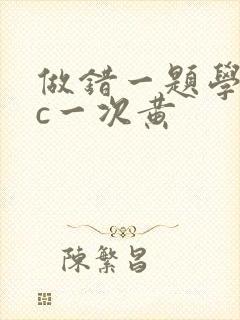 做錯一題學
c一次黃
陳繁昌